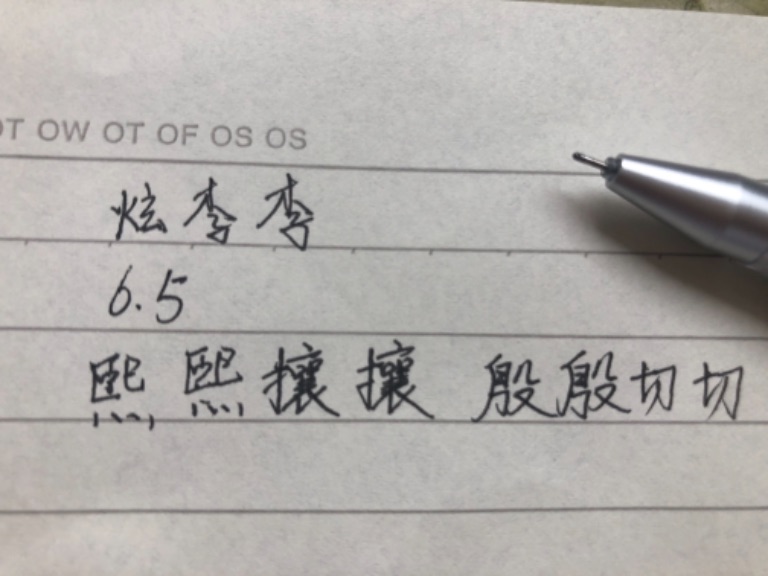 OT OW OT OF OS OS
炫李李
6.5
熙熙攘攘 殷殷切切